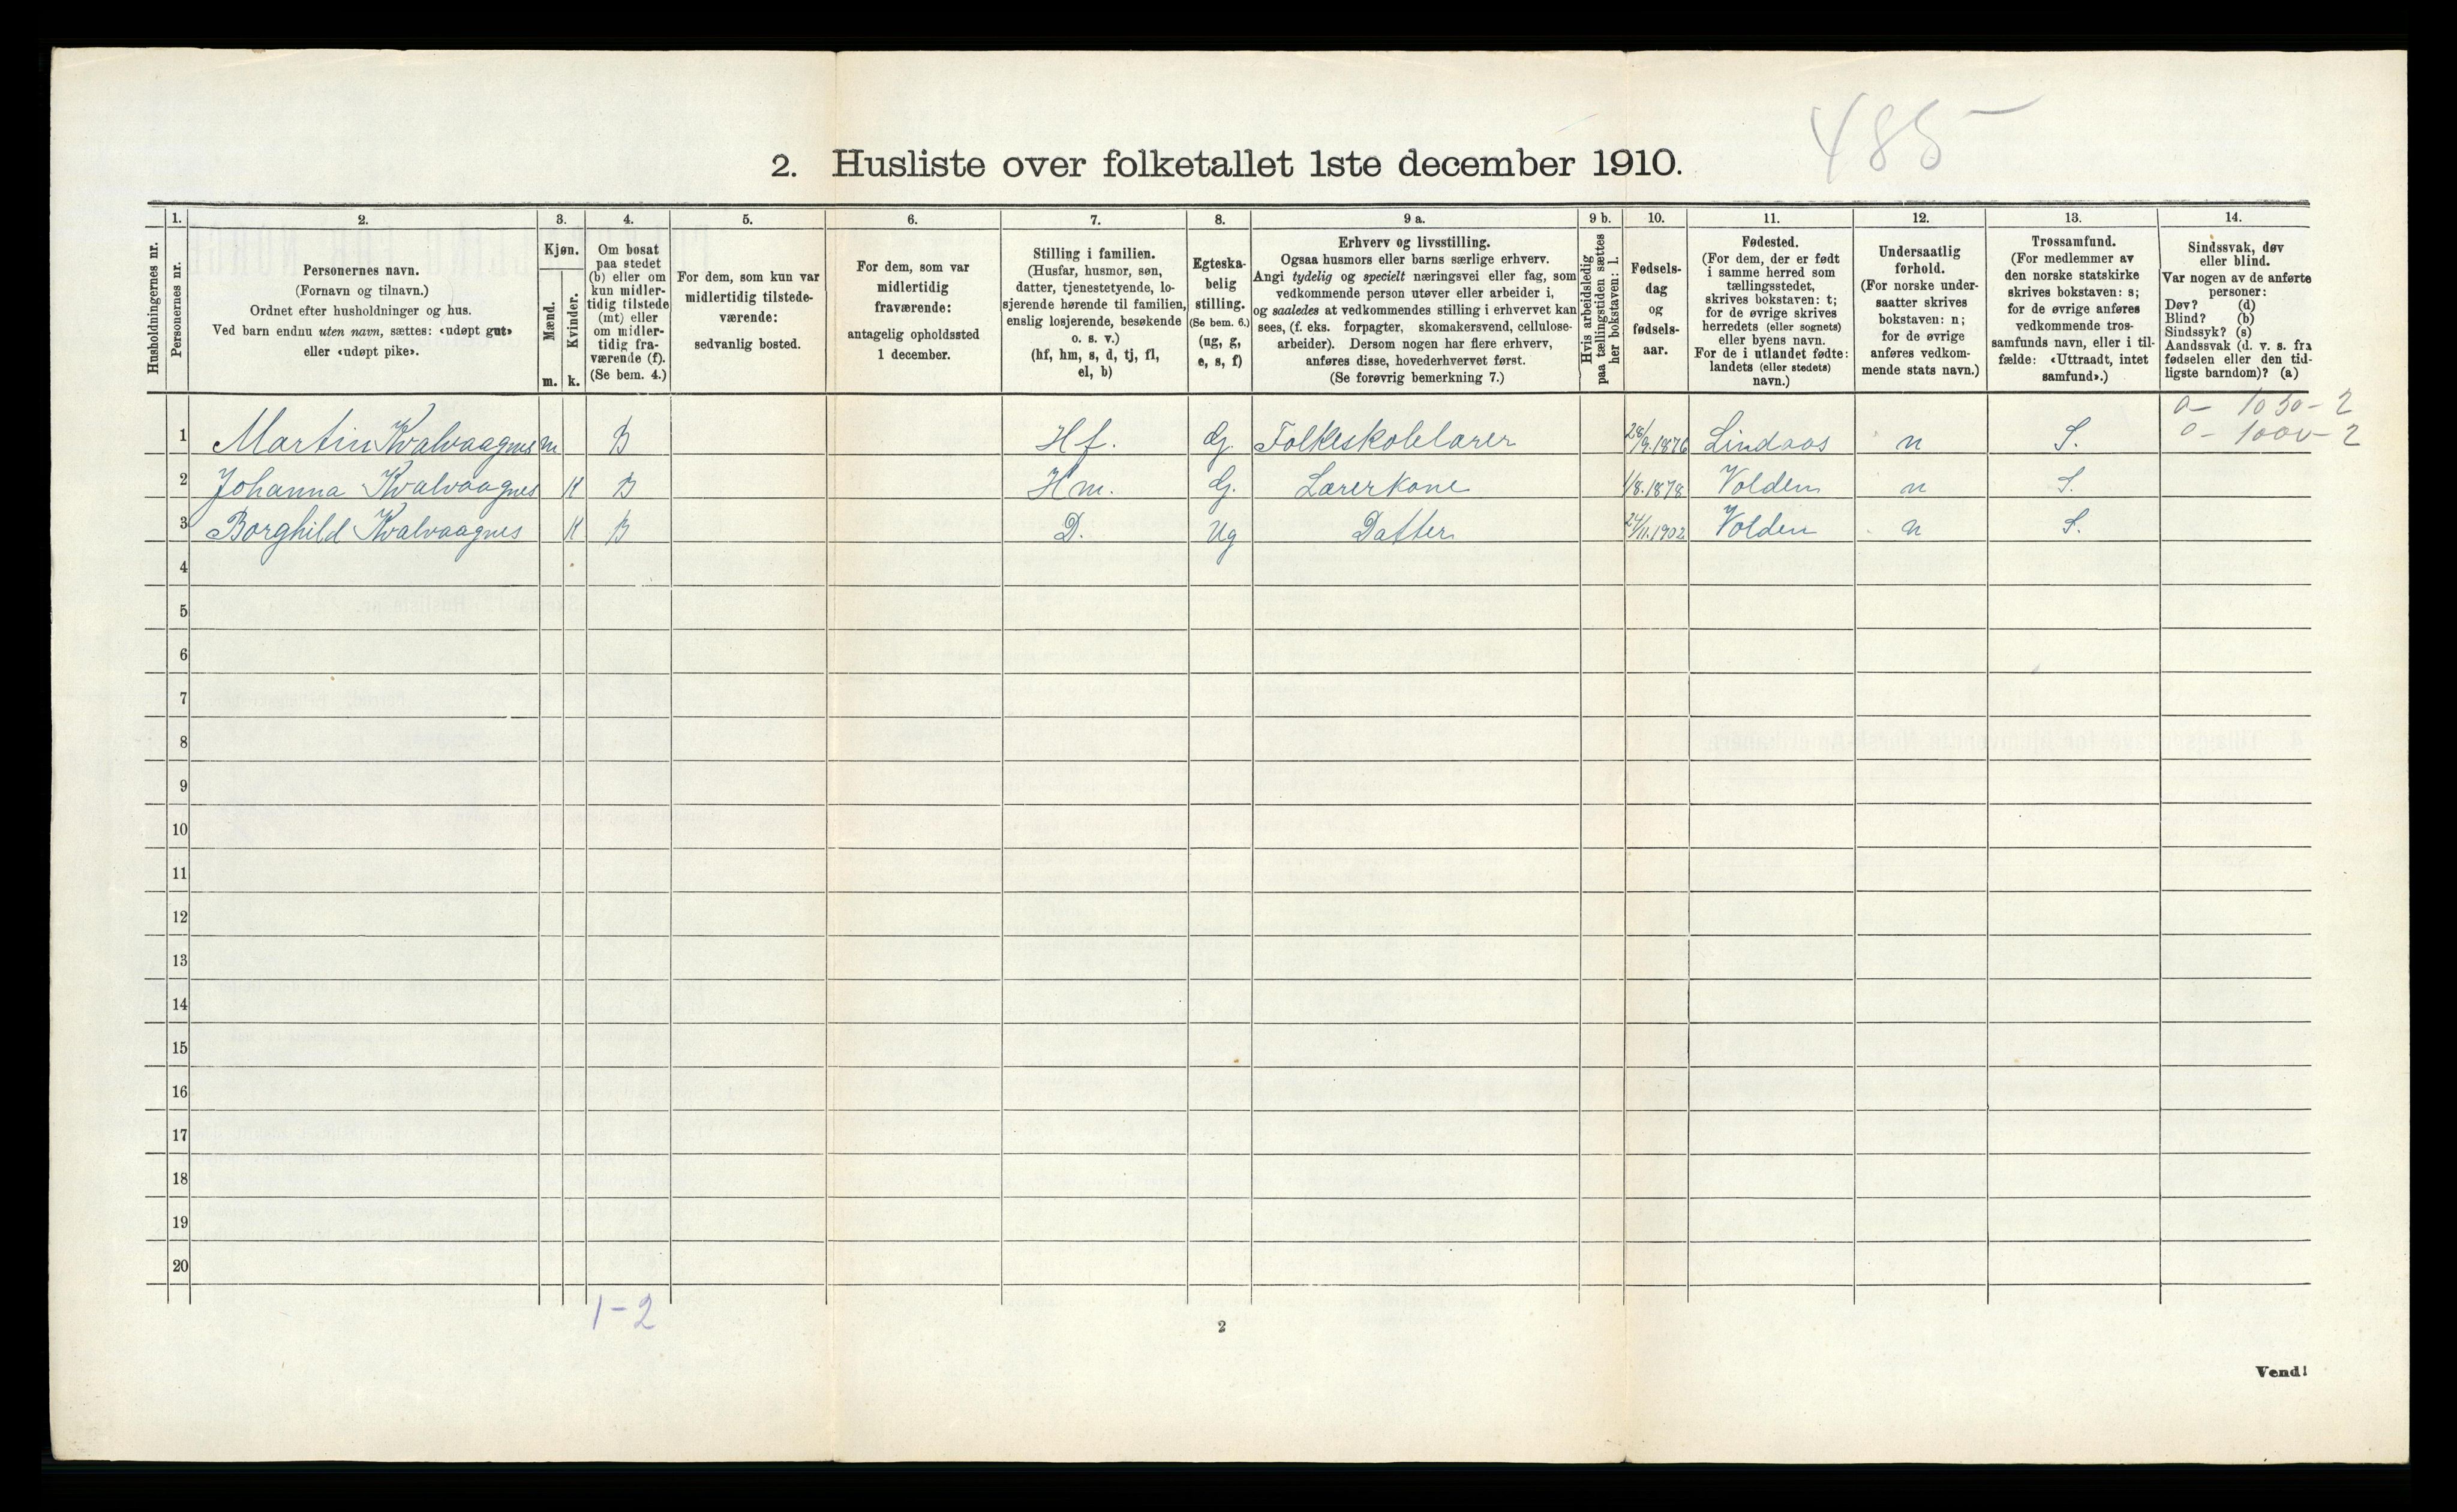 485
2. Husliste over folketallet 1ste december 1910.
Husholdningernes nr.
1. 2. 3. 4. 5. 6. 7. 8. 9 a. 9 b. 10. 11. 12. 13. 14.
Personernes nr.
Personernes navn.
(Fornavn og tilnavn.)
Ordnet efter husholdninger og hus.
Ved barn endnu uten navn, sættes: «udøpt gut»
eller «udøpt pike».
Kjøn.
Mænd.
Kvinder.
m. k.
Om bosat
paa stedet
(b) eller om
kun midler-
tidig tilstede
(mt) eller
om midler-
tidig fra-
værende (f).
(Se bem. 4.)
For dem, som kun var
midlertidig tilstede-
værende:
sedvanlig bosted.
For dem, som var
midlertidig
fraværende:
antagelig opholdssted
1 december.
Stilling i familien.
(Husfar, husmor, søn,
datter, tjenestetyende, lo-
sjerende hørende til familien,
enslig losjerende, besøkende
o. s. v.)
(hf, hm, s, d, tj, fl,
el, b)
Egteska-
belig
stilling.
(Se bem. 6.)
(ug, g,
e, s, f)
Erhverv og livsstilling.
Ogsaa husmors eller barns særlige erhverv.
Angi tydelig og specielt næringsvei eller fag, som
vedkommende person utøver eller arbeider i,
og saaledes at vedkommendes stilling i erhvervet kan
sees, (f. eks. forpagter, skomakersvend, cellulose-
arbeider). Dersom nogen har flere erhverv,
anføres disse, hovederhvervet først.
(Se forøvrig bemerkning 7.)
Hvis arbeidsledig
paa tællingstiden sættes
her bokstaven: l.
Fødsels-
dag
og
fødsels-
aar.
Fødested.
(For dem, der er født
i samme herred som
tællingsstedet,
skrives bokstaven: t;
for de øvrige skrives
herredets (eller sognets)
eller byens navn.
For de i utlandet fødte:
landets (eller stedets)
navn.)
Undersaatlig
forhold.
(For norske under-
saatter skrives
bokstaven: n;
for de øvrige
anføres vedkom-
mende stats navn.)
Trossamfund.
(For medlemmer av
den norske statskirke
skrives bokstaven: s;
for de øvrige anføres
vedkommende tros-
samfunds navn, eller i til-
fælde: «Uttraadt, intet
samfund».)
Sindssvak, døv
eller blind.
Var nogen av de anførte
personer:
Døv? (d)
Blind? (b)
Sindssyk? (s)
Aandssvak (d. v. s. fra
fødselen eller den tid-
ligste barndom)? (a)
0 - 1050 - 2
0 - 1000 - 2
1 Martin Kvalvaagnes m B Hf. G. Folkeskolelærer 28/9.1876 Lindaas n S.
2 Johanna Kvalvaagnes K B Hm. G. Lærerkone 1/8.1878 Volden n S.
3 Borghild Kvalvaagnes K B D. Ug Datter 24/11.1902 Volden n S.
4
5
6
7
8
9
10
11
12
13
14
15
16
17
18
19
20
1-2
2
Vend!